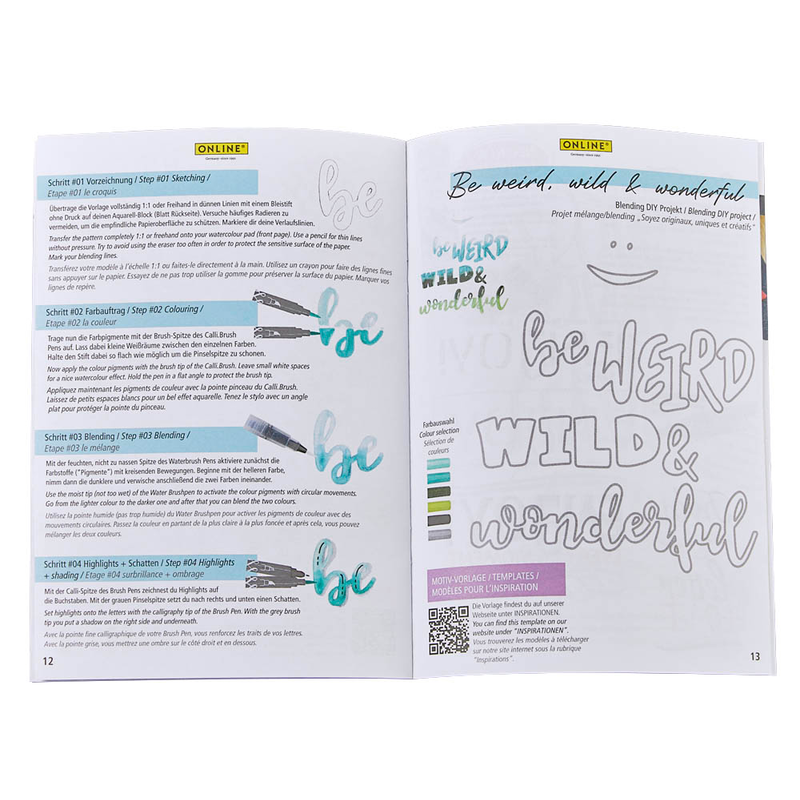 ONLINE®
Germany since 1991
Schritt #01 Vorzeichnung / Step #01 Sketching /
Etape #01 le croquis
be
Übertrage die Vorlage vollständig 1:1 oder Freihand in dünnen Linien mit einem Bleistift
ohne Druck auf deinen Aquarell-Block (Blatt Rückseite). Versuche häufiges Radieren zu
vermeiden, um die empfindliche Papieroberfläche zu schützen. Markiere dir deine Verlaufslinien.
Transfer the pattern completely 1:1 or freehand onto your watercolour pad (front page). Use a pencil for thin lines
without pressure. Try to avoid using the eraser too often in order to protect the sensitive surface of the paper.
Mark your blending lines.
Transférez votre modèle à l'échelle 1:1 ou faites-le directement à la main. Utilisez un crayon pour faire des lignes fines
sans appuyer sur le papier. Essayez de ne pas trop utiliser la gomme pour préserver la surface du papier. Marquer vos
lignes de repère.
Schritt #02 Farbauftrag / Step #02 Colouring /
Etape #02 la couleur
be
Trage nun die Farbpigmente mit der Brush-Spitze des Calli.Brush
Pens auf. Lass dabei kleine Weißräume zwischen den einzelnen Farben.
Halte den Stift dabei so flach wie möglich um die Pinselspitze zu schonen.
Now apply the colour pigments with the brush tip of the Calli.Brush. Leave small white spaces
for a nice watercolour effect. Hold the pen in a flat angle to protect the brush tip.
Appliquez maintenant les pigments de couleur avec la pointe pinceau du Calli.Brush.
Laissez de petits espaces blancs pour un bel effet aquarelle. Tenez le stylo avec un angle
plat pour protéger la pointe du pinceau.
Schritt #03 Blending / Step #03 Blending /
Etape #03 le mélange
be
Mit der feuchten, nicht zu nassen Spitze des Waterbrush Pens aktiviere zunächst die
Farbstoffe ("Pigmente") mit kreisenden Bewegungen. Beginne mit der helleren Farbe,
nimm dann die dunklere und verwische anschließend die zwei Farben ineinander.
Use the moist tip (not too wet) of the Water Brushpen to activate the colour pigments with circular movements.
Go from the lighter colour to the darker one and after that you can blend the two colours.
Utilisez la pointe humide (pas trop humide) du Water Brushpen pour activer les pigments de couleur avec des
mouvements circulaires. Passez la couleur en partant de la plus claire à la plus foncée et après cela, vous pouvez
mélanger les deux couleurs.
Schritt #04 Highlights + Schatten / Step #04 Highlights
+ shading / Etape #04 surbrillance + ombrage
be
Mit der Calli-Spitze des Brush Pens zeichnest du Highlights auf
die Buchstaben. Mit der grauen Pinselspitze setzt du nach rechts und unten einen Schatten.
Set highlights onto the letters with the calligraphy tip of the Brush Pen. With the grey brush
tip you put a shadow on the right side and underneath.
Avec la pointe fine calligraphique de votre Brush Pen, vous renforcez les traits de vos lettres.
Avec la pointe grise, vous mettrez une ombre sur le côté droit et en dessous.
12
ONLINE®
Germany since 1991
Be weird, wild & wonderful
Blending DIY Projekt / Blending DIY project /
Projet mélange/blending „Soyez originaux, uniques et créatifs"
be WEIRD
WILD &
wonderful
be WEIRD
WILD &
wonderful
Farbauswahl
Colour selection
Sélection de
couleurs
MOTIV-VORLAGE / TEMPLATES /
MODÈLES POUR L'INSPIRATION
Die Vorlage findest du auf unserer
Webseite unter INSPIRATIONEN.
You can find this template on our
website under "INSPIRATIONEN".
Vous trouverez les modèles à télécharger
sur notre site internet sous la rubrique
"Inspirations".
13